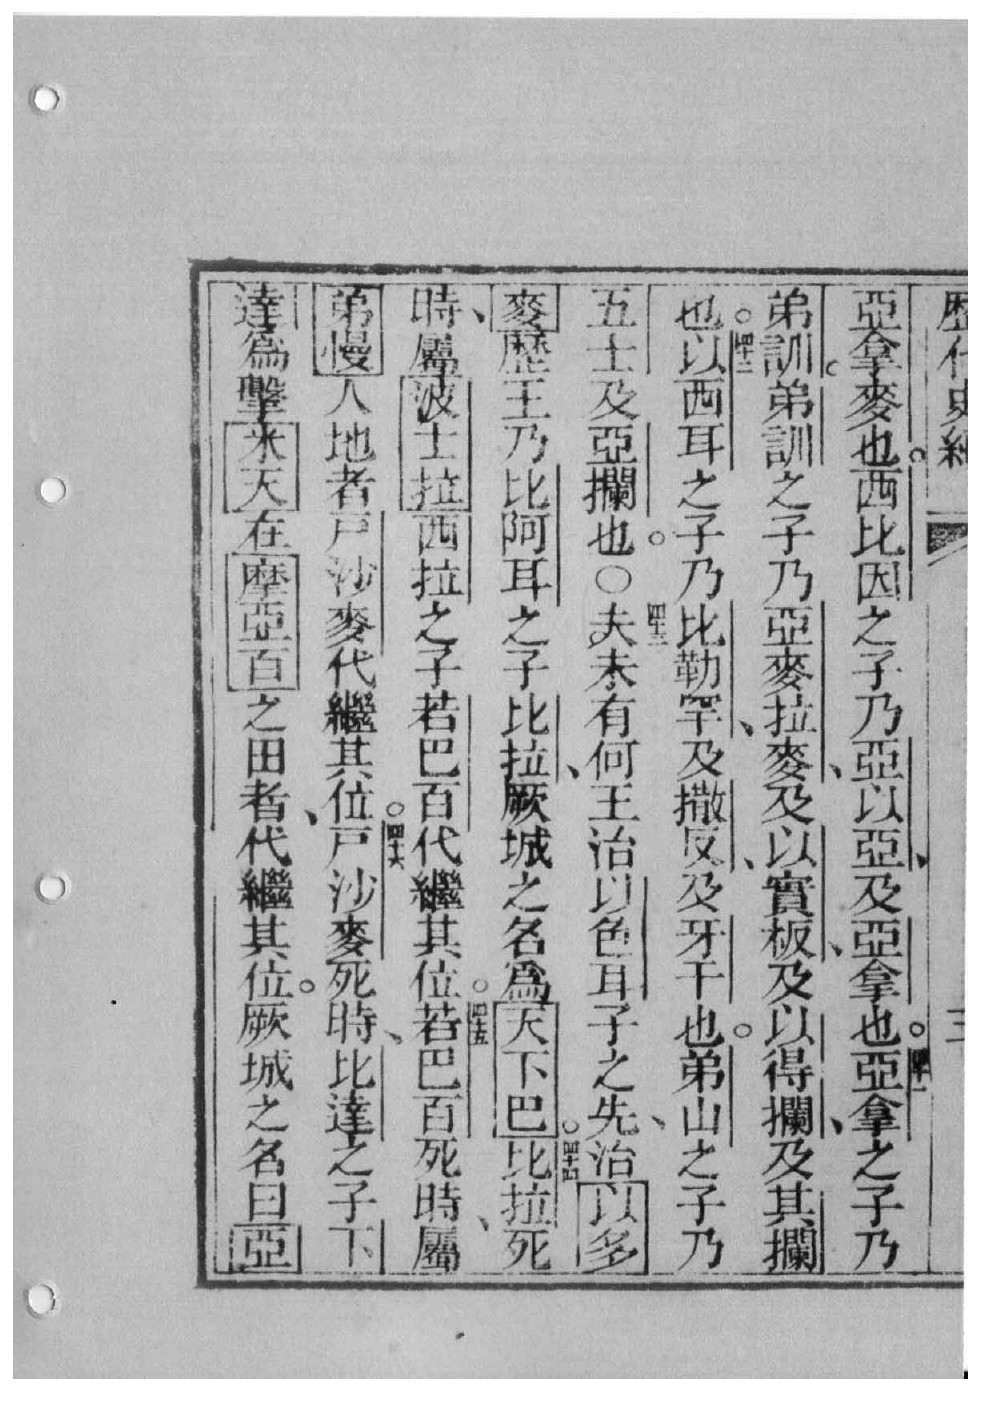 歷代史紀 三
亞拿麥也。西比因之子乃亞以亞、及亞拿也。四十一亞拿之子乃
弟訓。弟訓之子乃亞麥拉麥、及以實板、及以得攔、及其攔
也。四十二以西耳之子乃比勒罕、及撒反、及牙干也。弟山之子乃
五士及亞攔也。○四十三夫未有何王治以色耳子之先、治以多
麥歷王乃比阿耳之子比拉、厥城之名為天下巴。四十四比拉死
時、屬波士拉西拉之子若巴百代繼其位。四十五若巴百死時、屬
弟慢人地者戶沙麥代繼其位。四十六戶沙麥死時、比達之子下
達為擊米天在摩亞百之田者、代繼其位。厥城之名曰亞